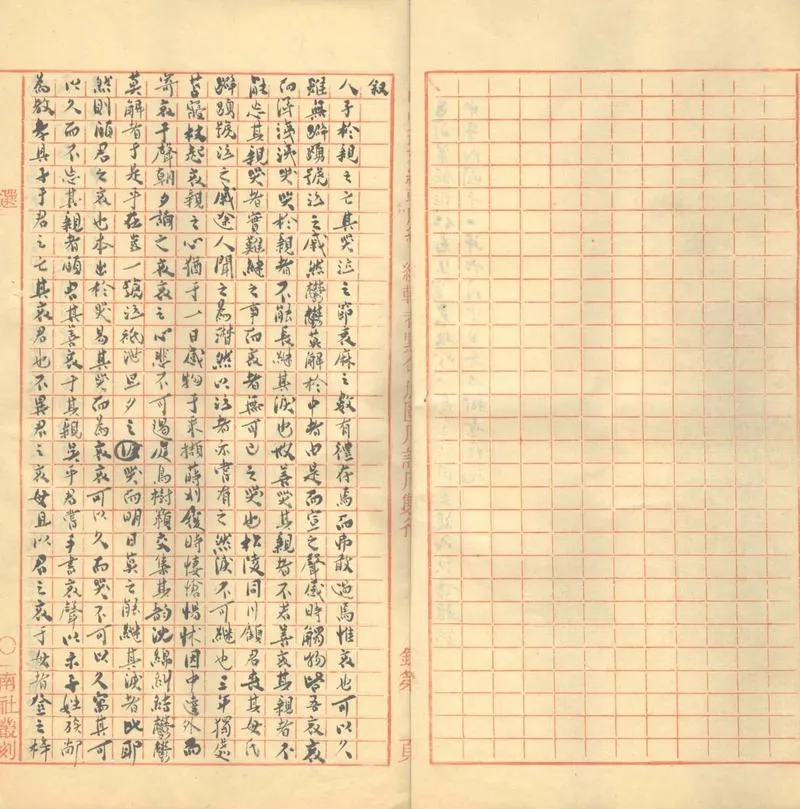 叙
人子於親之亡其哭泣之節衰麻之數有禮存焉而弗敢過焉惟哀也可以久
雖無擗踴號泣之戚然鬱鬱莫解於中者由是而宣之聲感時觸物皆吾哀哀
而淂淺淺哭於親者不能長継其淚也故善哭其親者不若善哀其親者不
能忘其親哭者實難継之事而哀者無可已之哭也松陵同川顧君喪其母氏
擗踴號泣之戚途人聞之為潸然以泣者亦嘗有之然淚不可継也三年獨處
苫寢杖起哀親之心猶于一日感物于来擷蒔刈穫時悽愴惕怵因中達外而
寄哀于聲朝夕誦之哀哀之心悲不可遏庭鳥樹顛交集其韵沈綿糾結鬱鬱
莫解者于是乎在豈一號泣能泄旦夕之哭而明日莫之能継其淚者比耶
然則顧君之哀也本出於哭易其哭而為哀哀可以久而哭不可以久寓其可
以久而不忘其親者顧君其善哀于其親吳乎君嘗手書哀聲以示子姓族鄰
為教孝具予于君之亡其哀君也不異君之哀母且以君之哀于母者登之梓
選
〇
南社叢刻
頁